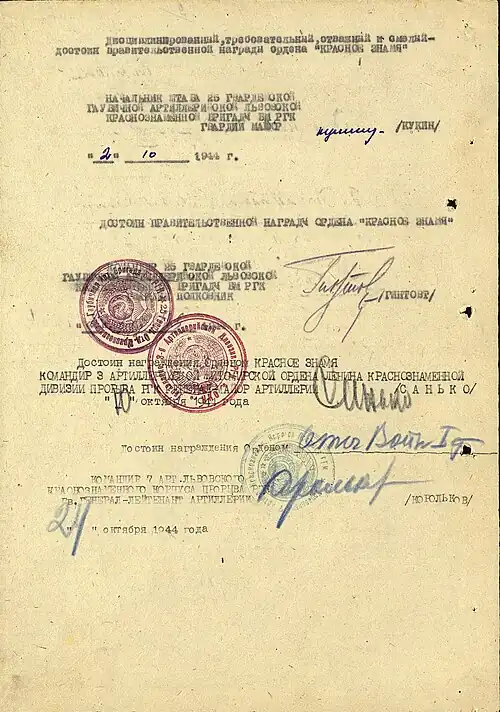 Дисциплинированный, требовательный, отважный и смелый-
достоин правительственной награды ордена "КРАСНОЕ ЗНАМЯ"
НАЧАЛЬНИК ШТАБА 25 ГВАРДЕЙСКОЙ
ГАУБИЧНОЙ АРТИЛЛЕРИЙСКОЙ ЛЬВОВСКОЙ
КРАСНОЗНАМЕННОЙ БРИГАДЫ БМ РГК
ГВАРДИИ МАЙОР /КУКИН/
"2" 10 1944 г.
ДОСТОИН ПРАВИТЕЛЬСТВЕННОЙ НАГРАДЫ ОРДЕНА "КРАСНОЕ ЗНАМЯ"
Р 25 ГВАРДЕЙСКОЙ
ГАУБИЧНОЙ АРТИЛЛЕРИЙСКОЙ ЛЬВОВСКОЙ
БРИГАДЫ БМ РГК
ПОЛКОВНИК /ГИНТОВТ/
г.
Достоин награждения Орденом КРАСНОЕ ЗНАМЯ
КОМАНДИР 3 АРТИЛЛЕРИЙСКОЙ ЖИТОМИРСКОЙ ОРДЕНА ЛЕНИНА КРАСНОЗНАМЕННОЙ
ДИВИЗИИ ПРОРЫВА РГК АРТИЛЛЕРИИ /САНЬКО/
"10" октября 1944 года
Достоин награждения Орденом Отеч Войн I ст
КОМАНДИР 7 АРТ. ЛЬВОВСКОГО
КРАСНОЗНАМЕННОГО КОРПУСА ПРОРЫВА
ГВ. ГЕНЕРАЛ-ЛЕЙТЕНАНТ АРТИЛЛЕРИИ /КОРОЛЬКОВ/
октября 1944 года